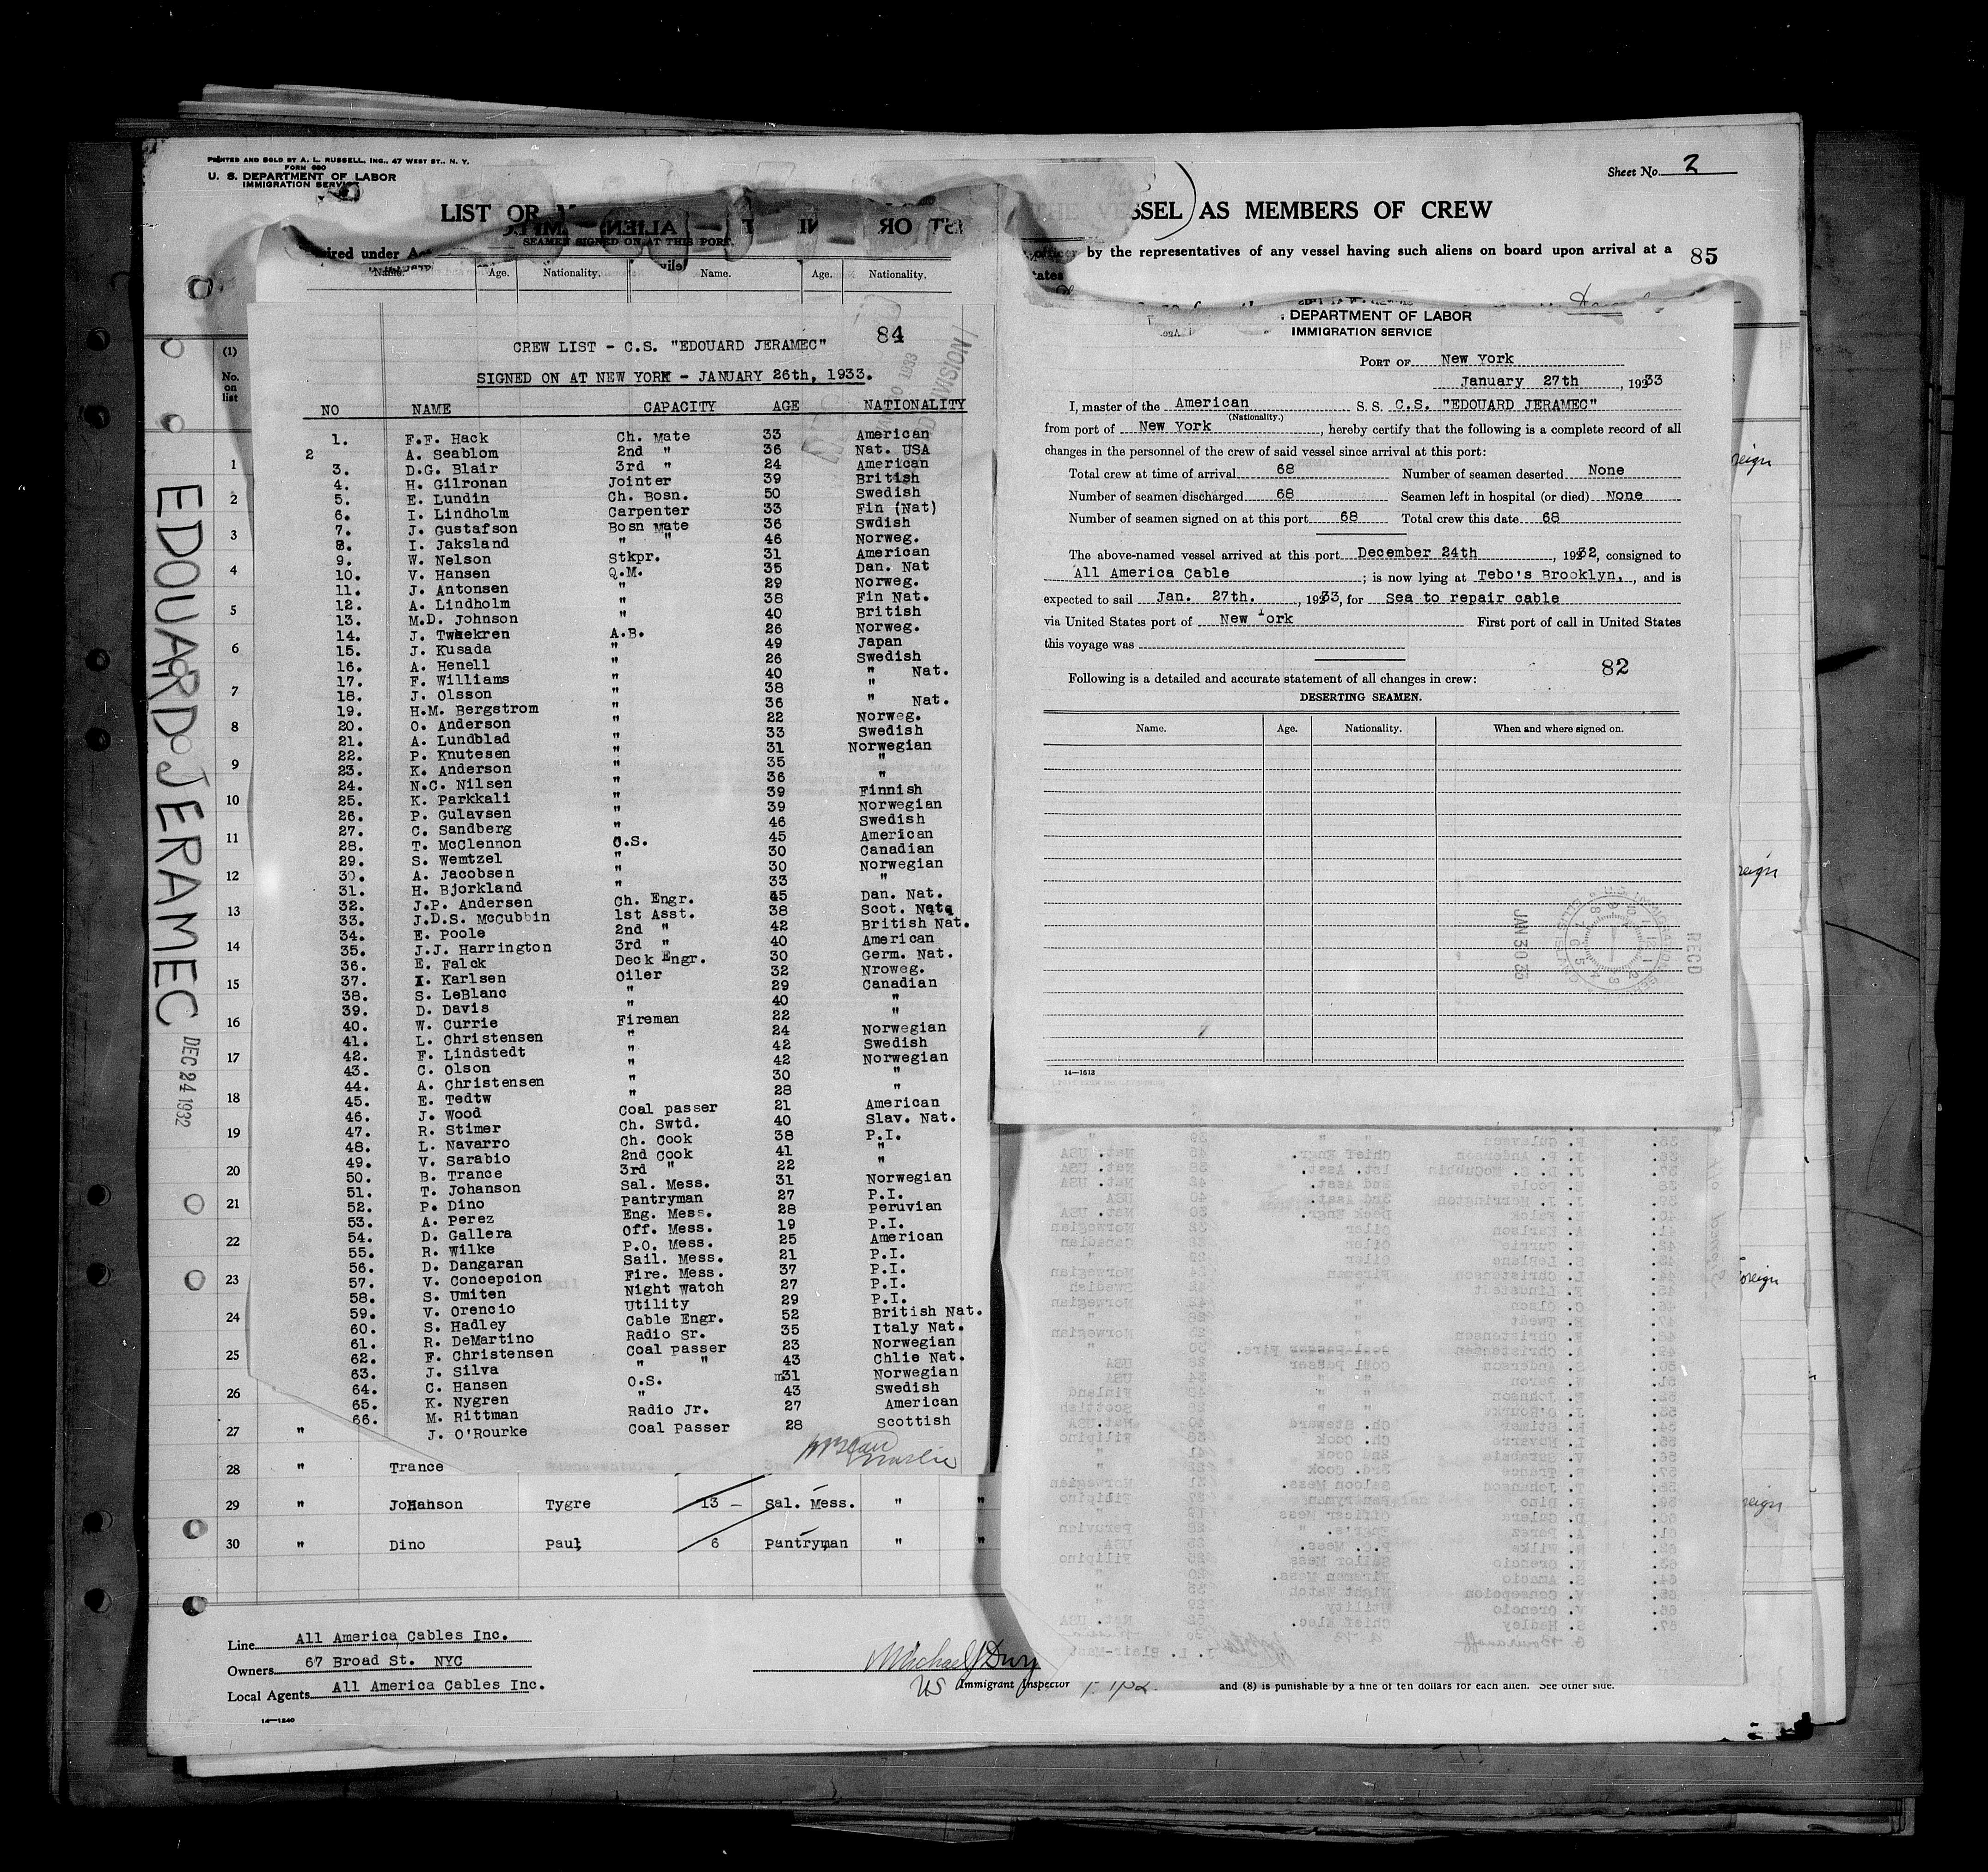 PRINTED AND SOLD BY A. L. RUSSELL, INC., 47 WEST ST., N. Y.
FORM 680
U. S. DEPARTMENT OF LABOR
IMMIGRATION SERVICE
Sheet No. 2
LIST OR
SSEL AS MEMBERS OF CREW
by the representatives of any vessel having such aliens on board upon arrival at a
85
SEAMEN SIGNED ON AT THIS PORT.
Name. Age. Nationality. Name. Age. Nationality.
84
CREW LIST - C.S. "EDOUARD JERAMEC"
SIGNED ON AT NEW YORK - JANUARY 26th, 1933.
NO NAME CAPACITY AGE NATIONALITY
1. F.F. Hack Ch. Mate 33 American
2 A. Seablom 2nd " 36 Nat. USA
3. D.G. Blair 3rd " 24 American
4. H. Gilronan Jointer 39 British
5. E. Lundin Ch. Bosn. 50 Swedish
6. I. Lindholm Carpenter 33 Fin (Nat)
7. J. Gustafson Bosn Mate 36 Swdish
8. I. Jaksland " " 46 Norweg.
9. W. Nelson Stkpr. 31 American
10. V. Hansen Q.M. 35 Dan. Nat
11. J. Antonsen " 29 Norweg.
12. A. Lindholm " 38 Fin Nat.
13. M.D. Johnson " 40 British
14. J. Twaekren A.B. 26 Norweg.
15. J. Kusada " 49 Japan
16. A. Henell " 26 Swedish
17. F. Williams " 40 " Nat.
18. J. Olsson " 38 "
19. H.M. Bergstrom " 36 " Nat.
20. O. Anderson " 22 Norweg.
21. A. Lundblad " 33 Swedish
22. P. Knutesen " 31 Norwegian
23. K. Anderson " 35 "
24. N.C. Nilsen " 36 "
25. K. Parkkali " 39 Finnish
26. P. Gulavsen " 39 Norwegian
27. C. Sandberg " 46 Swedish
28. T. McClennon O.S. 45 American
29. S. Wemtzel " 30 Canadian
30. A. Jacobsen " 30 Norwegian
31. H. Bjorkland " 33 "
32. J.P. Andersen Ch. Engr. 45 Dan. Nat.
33. J.D.S. McCubbin 1st Asst. 38 Scot. Nat.
34. E. Poole 2nd " 42 British Nat.
35. J.J. Harrington 3rd " 40 American
36. E. Falck Deck Engr. 30 Germ. Nat.
37. I. Karlsen Oiler 32 Nroweg.
38. S. LeBlanc " 29 Canadian
39. D. Davis " 40 "
40. W. Currie Fireman 22 "
41. L. Christensen " 24 Norwegian
42. F. Lindstedt " 42 Swedish
43. C. Olson " 42 Norwegian
44. A. Christensen " 30 "
45. E. Tedtw " 28 "
46. J. Wood Coal passer 21 American
47. R. Stimer Ch. Swtd. 40 Slav. Nat.
48. L. Navarro Ch. Cook 38 P.I.
49. V. Sarabio 2nd Cook 41 "
50. B. Trance 3rd " 22 "
51. T. Johanson Sal. Mess. 31 Norwegian
52. P. Dino Pantryman 27 P.I.
53. A. Perez Eng. Mess. 28 Peruvian
54. D. Gallera Off. Mess. 19 P.I.
55. R. Wilke P.O. Mess. 25 American
56. D. Dangaran Sail. Mess. 21 P.I.
57. V. Concepcion Fire. Mess. 37 P.I.
58. S. Umiten Night Watch 27 P.I.
59. V. Orencio Utility 29 P.I.
60. S. Hadley Cable Engr. 52 British Nat.
61. R. DeMartino Radio Sr. 35 Italy Nat.
62. F. Christensen Coal passer 23 Norwegian
63. J. Silva " " 43 Chlie Nat.
64. C. Hansen O.S. 31 Norwegian
65. K. Nygren " 43 Swedish
66. M. Rittman Radio Jr. 27 American
J. O'Rourke Coal Passer 28 Scottish
DEPARTMENT OF LABOR
IMMIGRATION SERVICE
PORT OF New York
January 27th, 1933
I, master of the American S. S. C.S. "EDOUARD JERAMEC"
(Nationality.)
from port of New York, hereby certify that the following is a complete record of all
changes in the personnel of the crew of said vessel since arrival at this port:
Total crew at time of arrival 68 Number of seamen deserted None
Number of seamen discharged 68 Seamen left in hospital (or died) None
Number of seamen signed on at this port 68 Total crew this date 68
The above-named vessel arrived at this port December 24th, 1932, consigned to
All America Cable; is now lying at Tebo's Brooklyn., and is
expected to sail Jan. 27th., 1933, for Sea to repair cable
via United States port of New York First port of call in United States
this voyage was
82
Following is a detailed and accurate statement of all changes in crew:
DESERTING SEAMEN.
Name. Age. Nationality. When and where signed on.
RECD
JAN 30 33
14—1613
EDOUARD JERAMEC DEC 24 1932
(1)
No.
on
list
1
2
3
4
5
6
7
8
9
10
11
12
13
14
15
16
17
18
19
20
21
22
23
24
25
26
27 "
28 " Trance
29 " Johanson Tygre 13 - Sal. Mess. " "
30 " Dino Paul 6 Pantryman " "
Line All America Cables Inc.
Owners 67 Broad St. NYC
Local Agents All America Cables Inc.
14—1240
US Immigrant Inspector
and (8) is punishable by a fine of ten dollars for each alien. See other side.